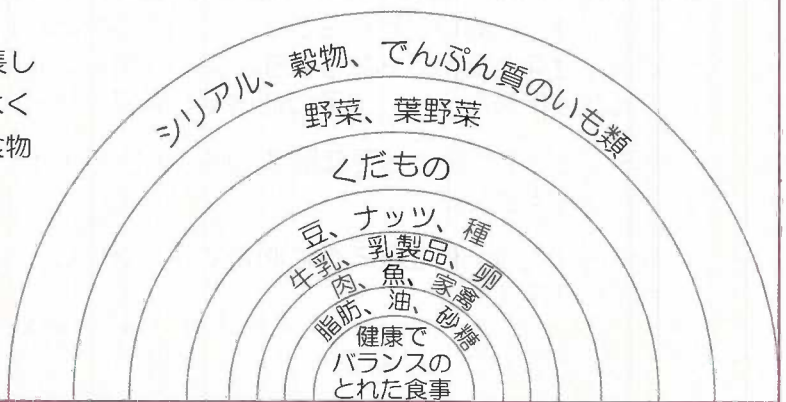 シリアル、穀物、でんぷん質のいも類
野菜、葉野菜
くだもの
豆、ナッツ、種
牛乳、乳製品、卵
肉、魚、家禽
脂肪、油、砂糖
健康で
バランスの
とれた食事